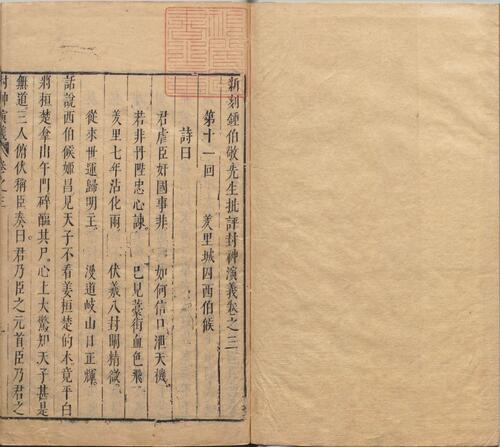 新刻鍾伯敬先生批評封神演義卷之三
第十一回　羑里城囚西伯侯
詩曰
君虐臣奸國事非　如何信口泄天機
若非丹陛忠心諫　已見藁街血色飛
羑里七年沾化雨　伏羲八卦闡精微
從來世運歸明主　漫道岐山日正輝
話說西伯侯姬昌見天子不看姜桓楚的本竟平白
將桓楚拿出午門碎醢其尸心上大驚知天子甚是
無道三人俯伏稱臣奏曰君乃臣之元首臣乃君之
封神演義　卷之三